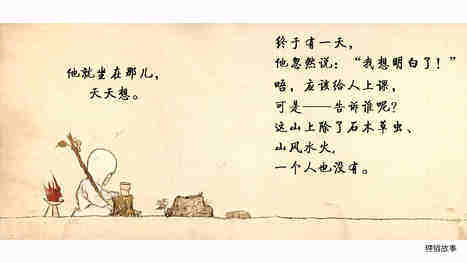 他就坐在那儿，
天天想。
终于有一天，
他忽然说：“我想明白了！”
唔，应该给人上课，
可是——告诉谁呢？
这山上除了石木草虫、
山风水火，
一个人也没有。
狸猫故事